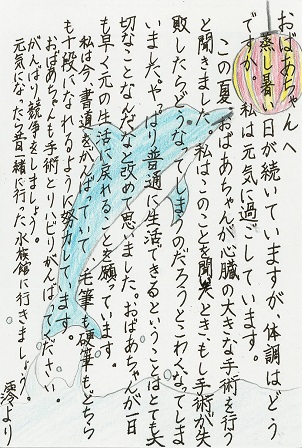 おばあちゃんへ
蒸し暑い日が続いていますが、体調はどう
ですか。私は元気に過ごしています。
この夏、おばあちゃんが心臓の大きな手術を行う
と聞きました。私はこのことを聞いたとき、もし手術が失
敗したらどうなってしまうのだろうとこわくなってしま
いました。やっぱり普通に生活できるということはとても大
切なことなんだなと改めて思いました。おばあちゃんが一日
も早く元の生活に戻れることを願っています。
私は今、書道をがんばっていて、毛筆、硬筆もどちら
も十段になれるように努力しています。
おばあちゃんも手術とリハビリがんばってください。
がんばり競争をしましょう。
元気になったら昔一緒に行った水族館に行きましょう。
澪より